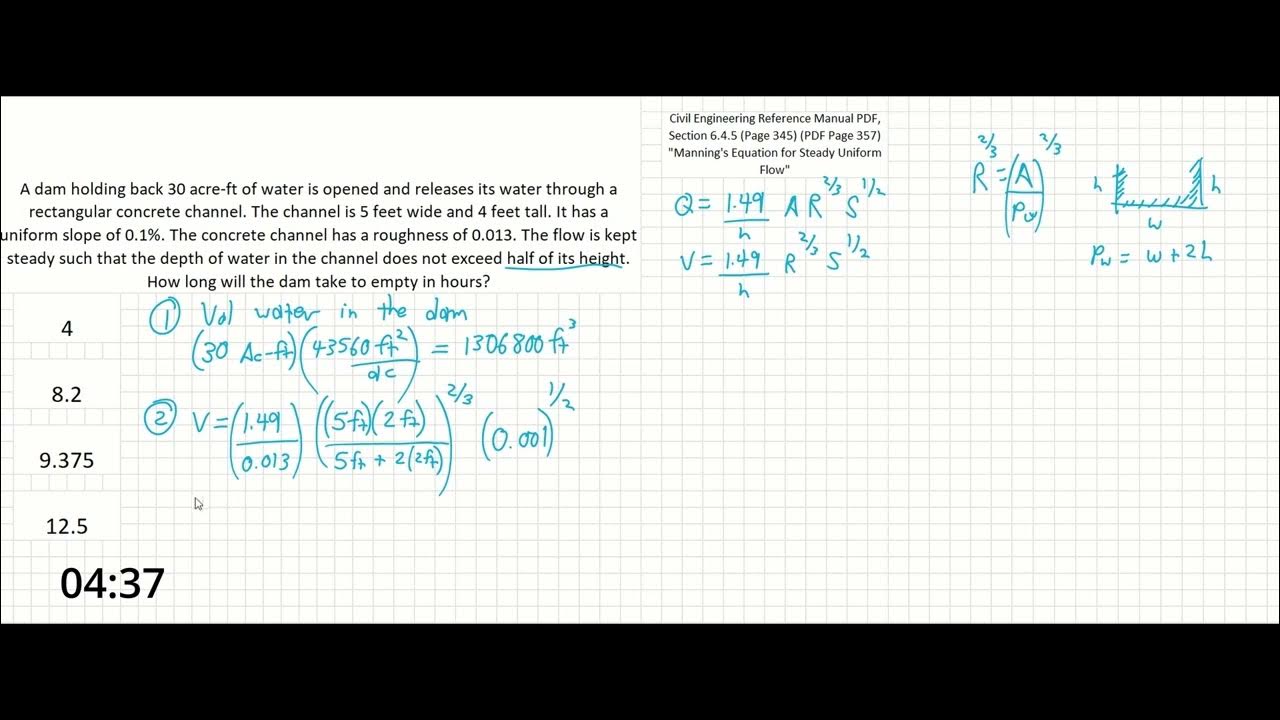 Civil Engineering Reference Manual PDF,
Section 6.4.5 (Page 345) (PDF Page 357)
"Manning's Equation for Steady Uniform
Flow"
A dam holding back 30 acre-ft of water is opened and releases its water through a
rectangular concrete channel. The channel is 5 feet wide and 4 feet tall. It has a
uniform slope of 0.1%. The concrete channel has a roughness of 0.013. The flow is kept
steady such that the depth of water in the channel does not exceed half of its height.
How long will the dam take to empty in hours?
4
8.2
9.375
12.5
04:37
① Vol water in the dam
(30 Ac-ft) (43560 ft² / ac) = 1306800 ft³
② V = (1.49 / 0.013) ((5ft)(2ft) / 5ft + 2(2ft))^2/3 (0.001)^1/2
Q = 1.49 / n A R^2/3 S^1/2
V = 1.49 / n R^2/3 S^1/2
R^2/3 = (A / Pw)^2/3
h h
w
Pw = w + 2h